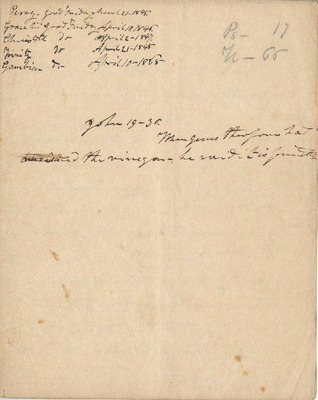 Perry - Good Friday March 21 - 1845
Grace Ch Good Friday April 10, 1846
do April 2 - 1847
Trinity do April 21 - 1848
Gambier do April 10 - 1868
Po - 17
N - 66
John 19 - 30.
When Jesus therefore had
received the vinegar - he said: it is finished